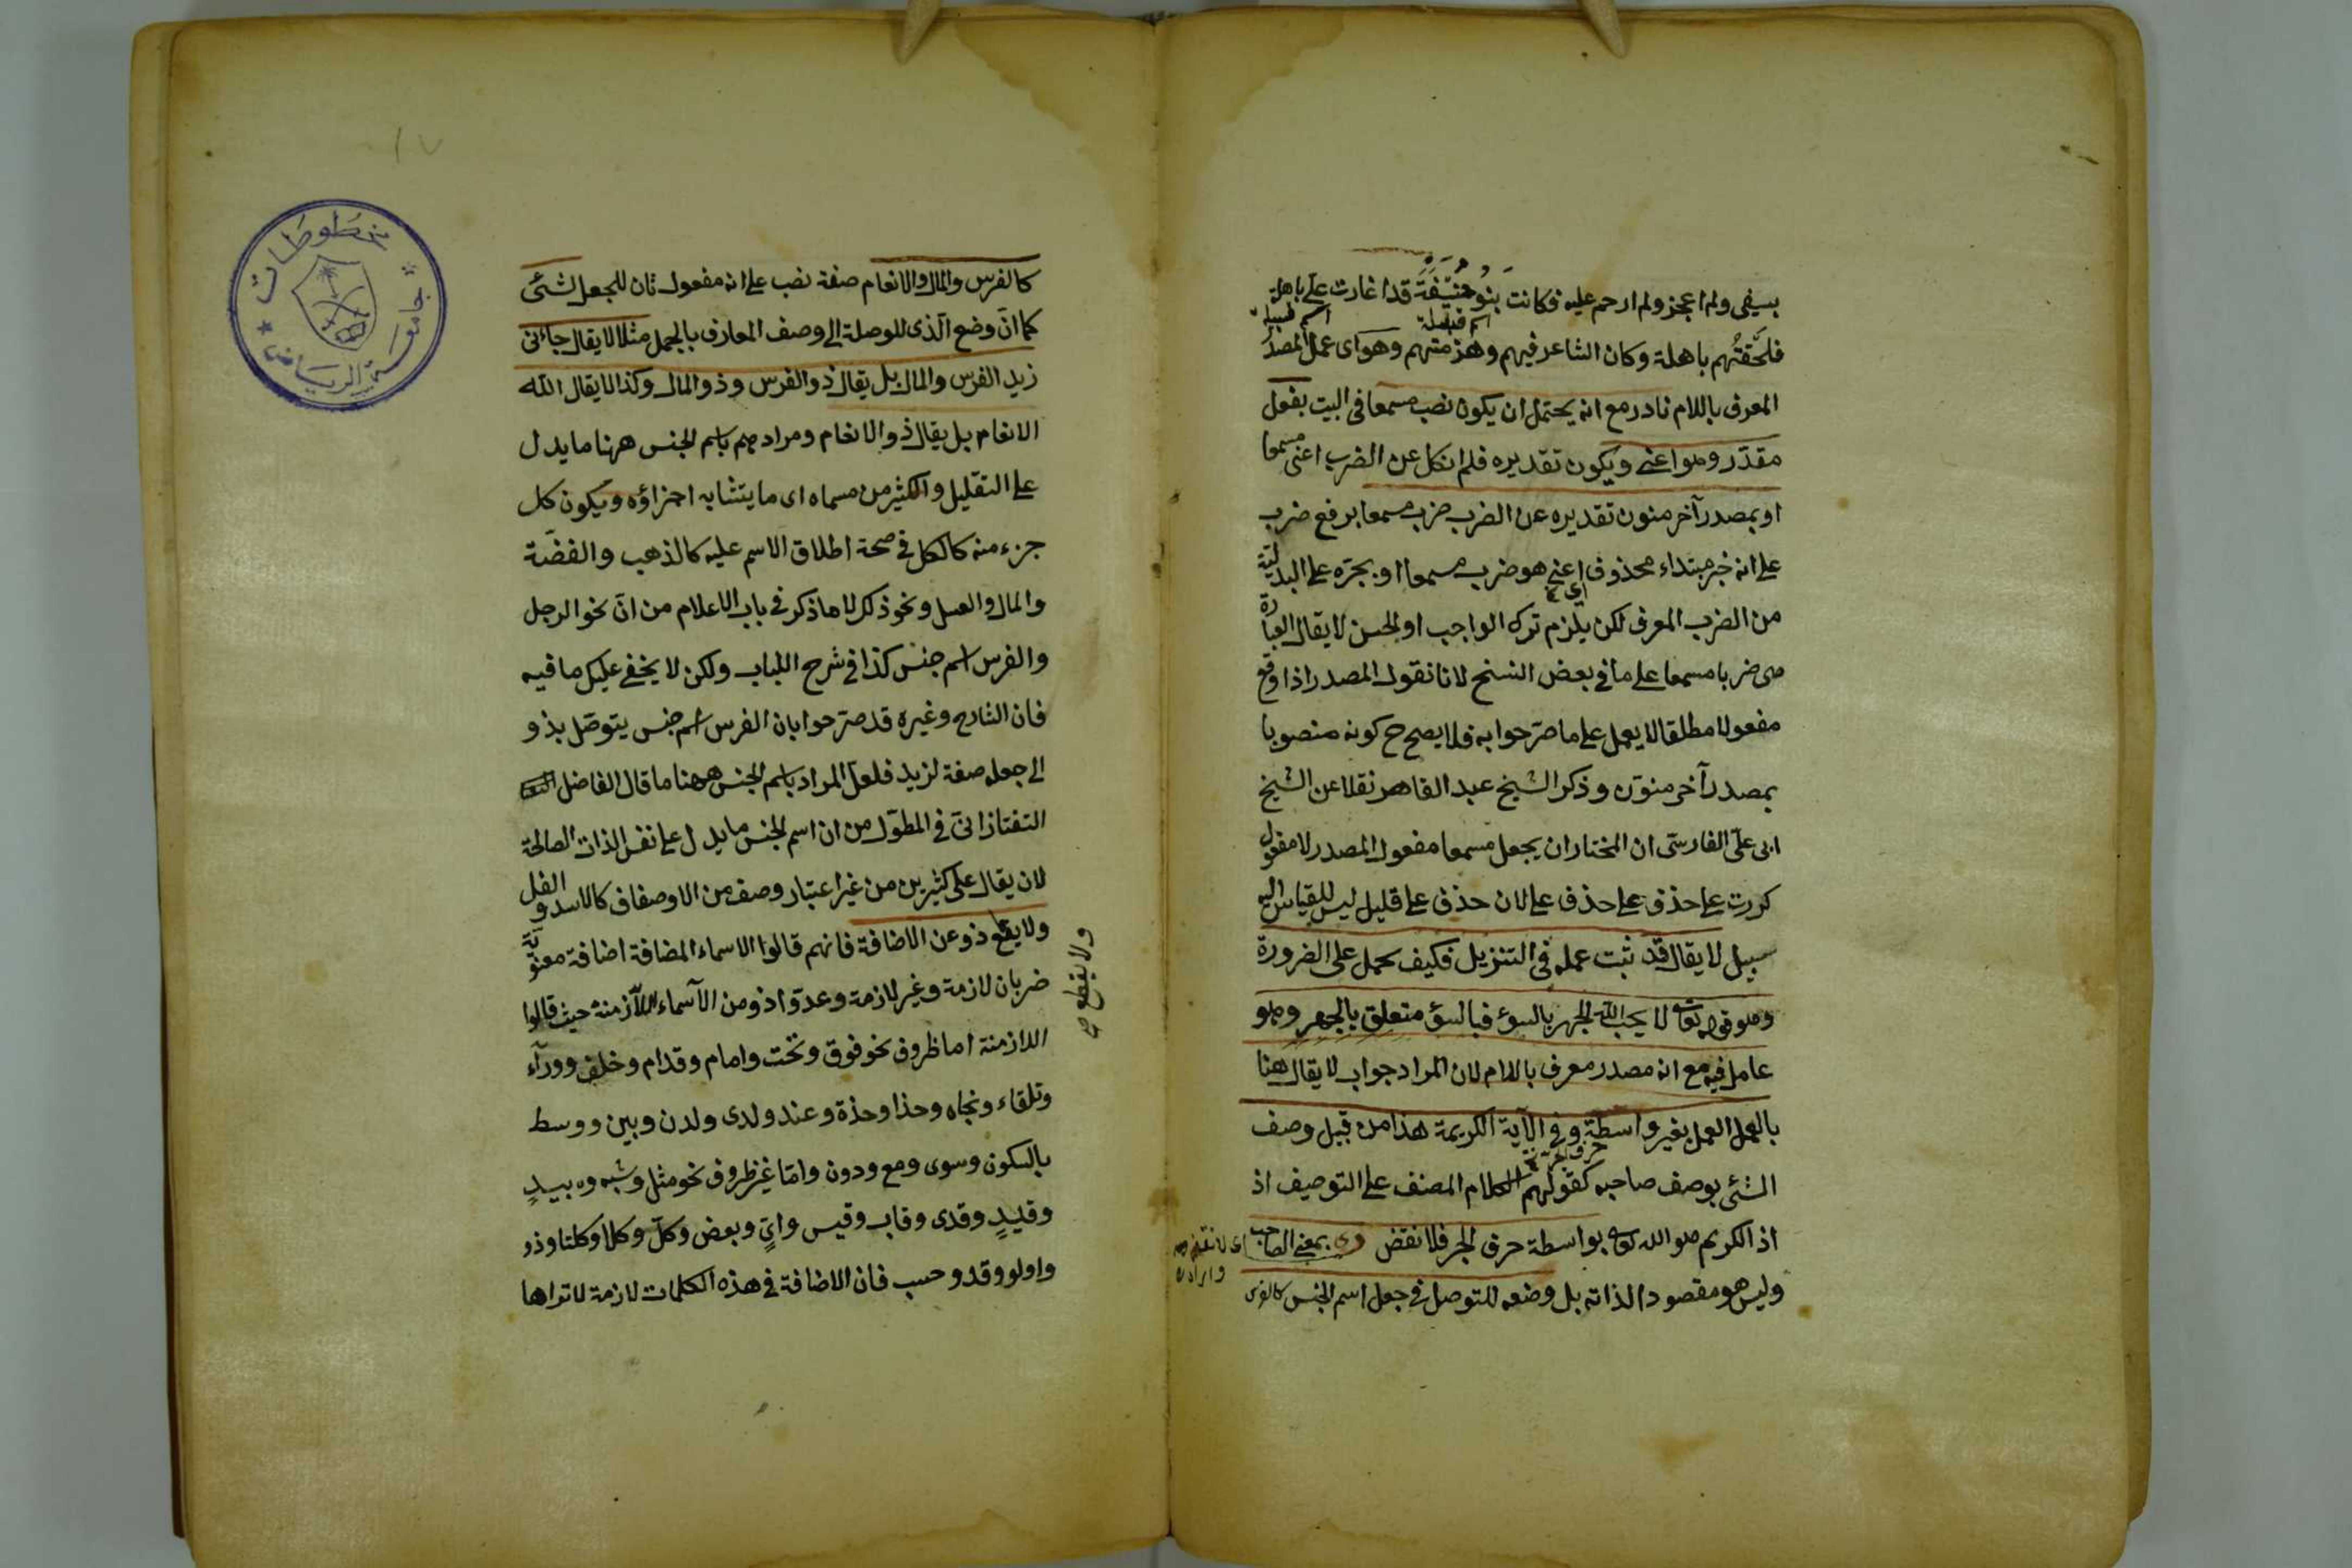 بسيفى ولم اعجز ولم ارحم عليه فكانت بَنُو حَنِيفَةَ قد اغارت على باهلة
اسم قبيلة اسم قبيلة
فلحقتُهم باهلة وكان الشاعر فيهم وهزمتهم وهو اى عمل المصدر
المعرف باللام نادر مع انه يحتمل ان يكون نصب مسمعا فى البيت بفعل
مقدّر وهو اعنى ويكون تقديره فلم انكل عن الضرب اعنى مسمعا
او بمصدر آخر منون تقديره عن الضرب ضرب مسمعا برفع ضرب
على انه خبر مبتداء محذوف اعنى هو ضرب مسمعا او بجرّه على البدلية
من الضرب المعرف لكن يلزم ترك الواجب او الحسن لا يقال العبارة
ضربا مسمعا على ما فى بعض النسخ لانا نقول المصدر اذا وقع
مفعولا مطلقا لا يعمل على ما صرّحوا به فلا يصح ح كونه منصوبا
بمصدر آخر منوّن وذكر الشيخ عبد القاهر نقلا عن الشيخ
ابى علىّ الفارسىّ ان المختار ان يجعل مسمعا مفعول المصدر لا مفعول
كررت على حذف على حذف على لان حذف على قليل ليس للقياس اليه
سبيل لا يقال قد ثبت عمله فى التنزيل فكيف يحمل على الضرورة
وهو قوله تعالى لا يحب الله الجهر بالسوء فبالسوء متعلق بالجهر وهو
عامل فيه مع انه مصدر معرف باللام لان المراد جواب لا يقال هنا
بالعمل العمل بغير واسطة وفى الآية الكريمة هذا من قبيل وصف
الشئ بوصف صاحبه كقولهم الكلام المصنف على التوصيف اذ
اذ الكريم هو الله تعالى بواسطة حرف الجر فلا نقض وذى بمعنى الصاحب
وليس هو مقصودا لذاته بل وضعه للتوصل فى جعل اسم الجنس كالفرس
كالفرس والمال والانعام صفة نصب على انه مفعول ثان للجعل لشئ
كما انّ وضع الّذى للوصلة الى وصف المعارف بالجمل مثلا لا يقال جاءنى
زيد الفرس والمال بل يقال ذو الفرس وذو المال وكذا لا يقال الله
الانعام بل يقال ذو الانعام ومرادهم باسم الجنس ههنا ما يدل
على التقليل والكثير من مسماه اى ما يتشابه اجزاؤه ويكون كل
جزء منه كالكل فى صحة اطلاق الاسم عليه كالذهب والفضّة
والمال والعسل ونحو ذلك لا ما ذكر فى باب الاعلام من انّ نحو الرجل
والفرس اسم جنس كذا فى شرح اللباب ولكن لا يخفى عليك ما فيه
فان الشارح وغيره قد صرّحوا بان الفرس اسم جنس يتوصّل بذو
الى جعله صفة لزيد فلعل المراد باسم الجنس ههنا ما قال الفاضل
التفتازانىّ فى المطوّل من ان اسم الجنس ما يدل على نفس الذات الصالحة
لان يقال على كثيرين من غير اعتبار وصف من الاوصاف كالاسد و
ولا يقطع ذو عن الاضافة فانهم قالوا الاسماء المضافة اضافة معنويّة
ولا يقطع صح
ضربان لازمة وغير لازمة وعدّوا ذو من الأسماء اللازمة حيث قالوا
اللازمة اما ظروف نحو فوق وتحت وامام وقدام وخلف ووراء
وتلقاء وتجاه وحذا وحذة وعند ولدى ولدن وبين ووسط
بالسكون وسوى ومع ودون وامّا غير ظروف نحو مثل وشبه وبيدٍ
وقيدٍ وقدى وقاب وقيس واىّ وبعض وكلّ وكلا وكلتا وذو
واولو وقد وحسب فان الاضافة فى هذه الكلمات لازمة لا تراها
مخطوطات
جامعة الرياض
١٧